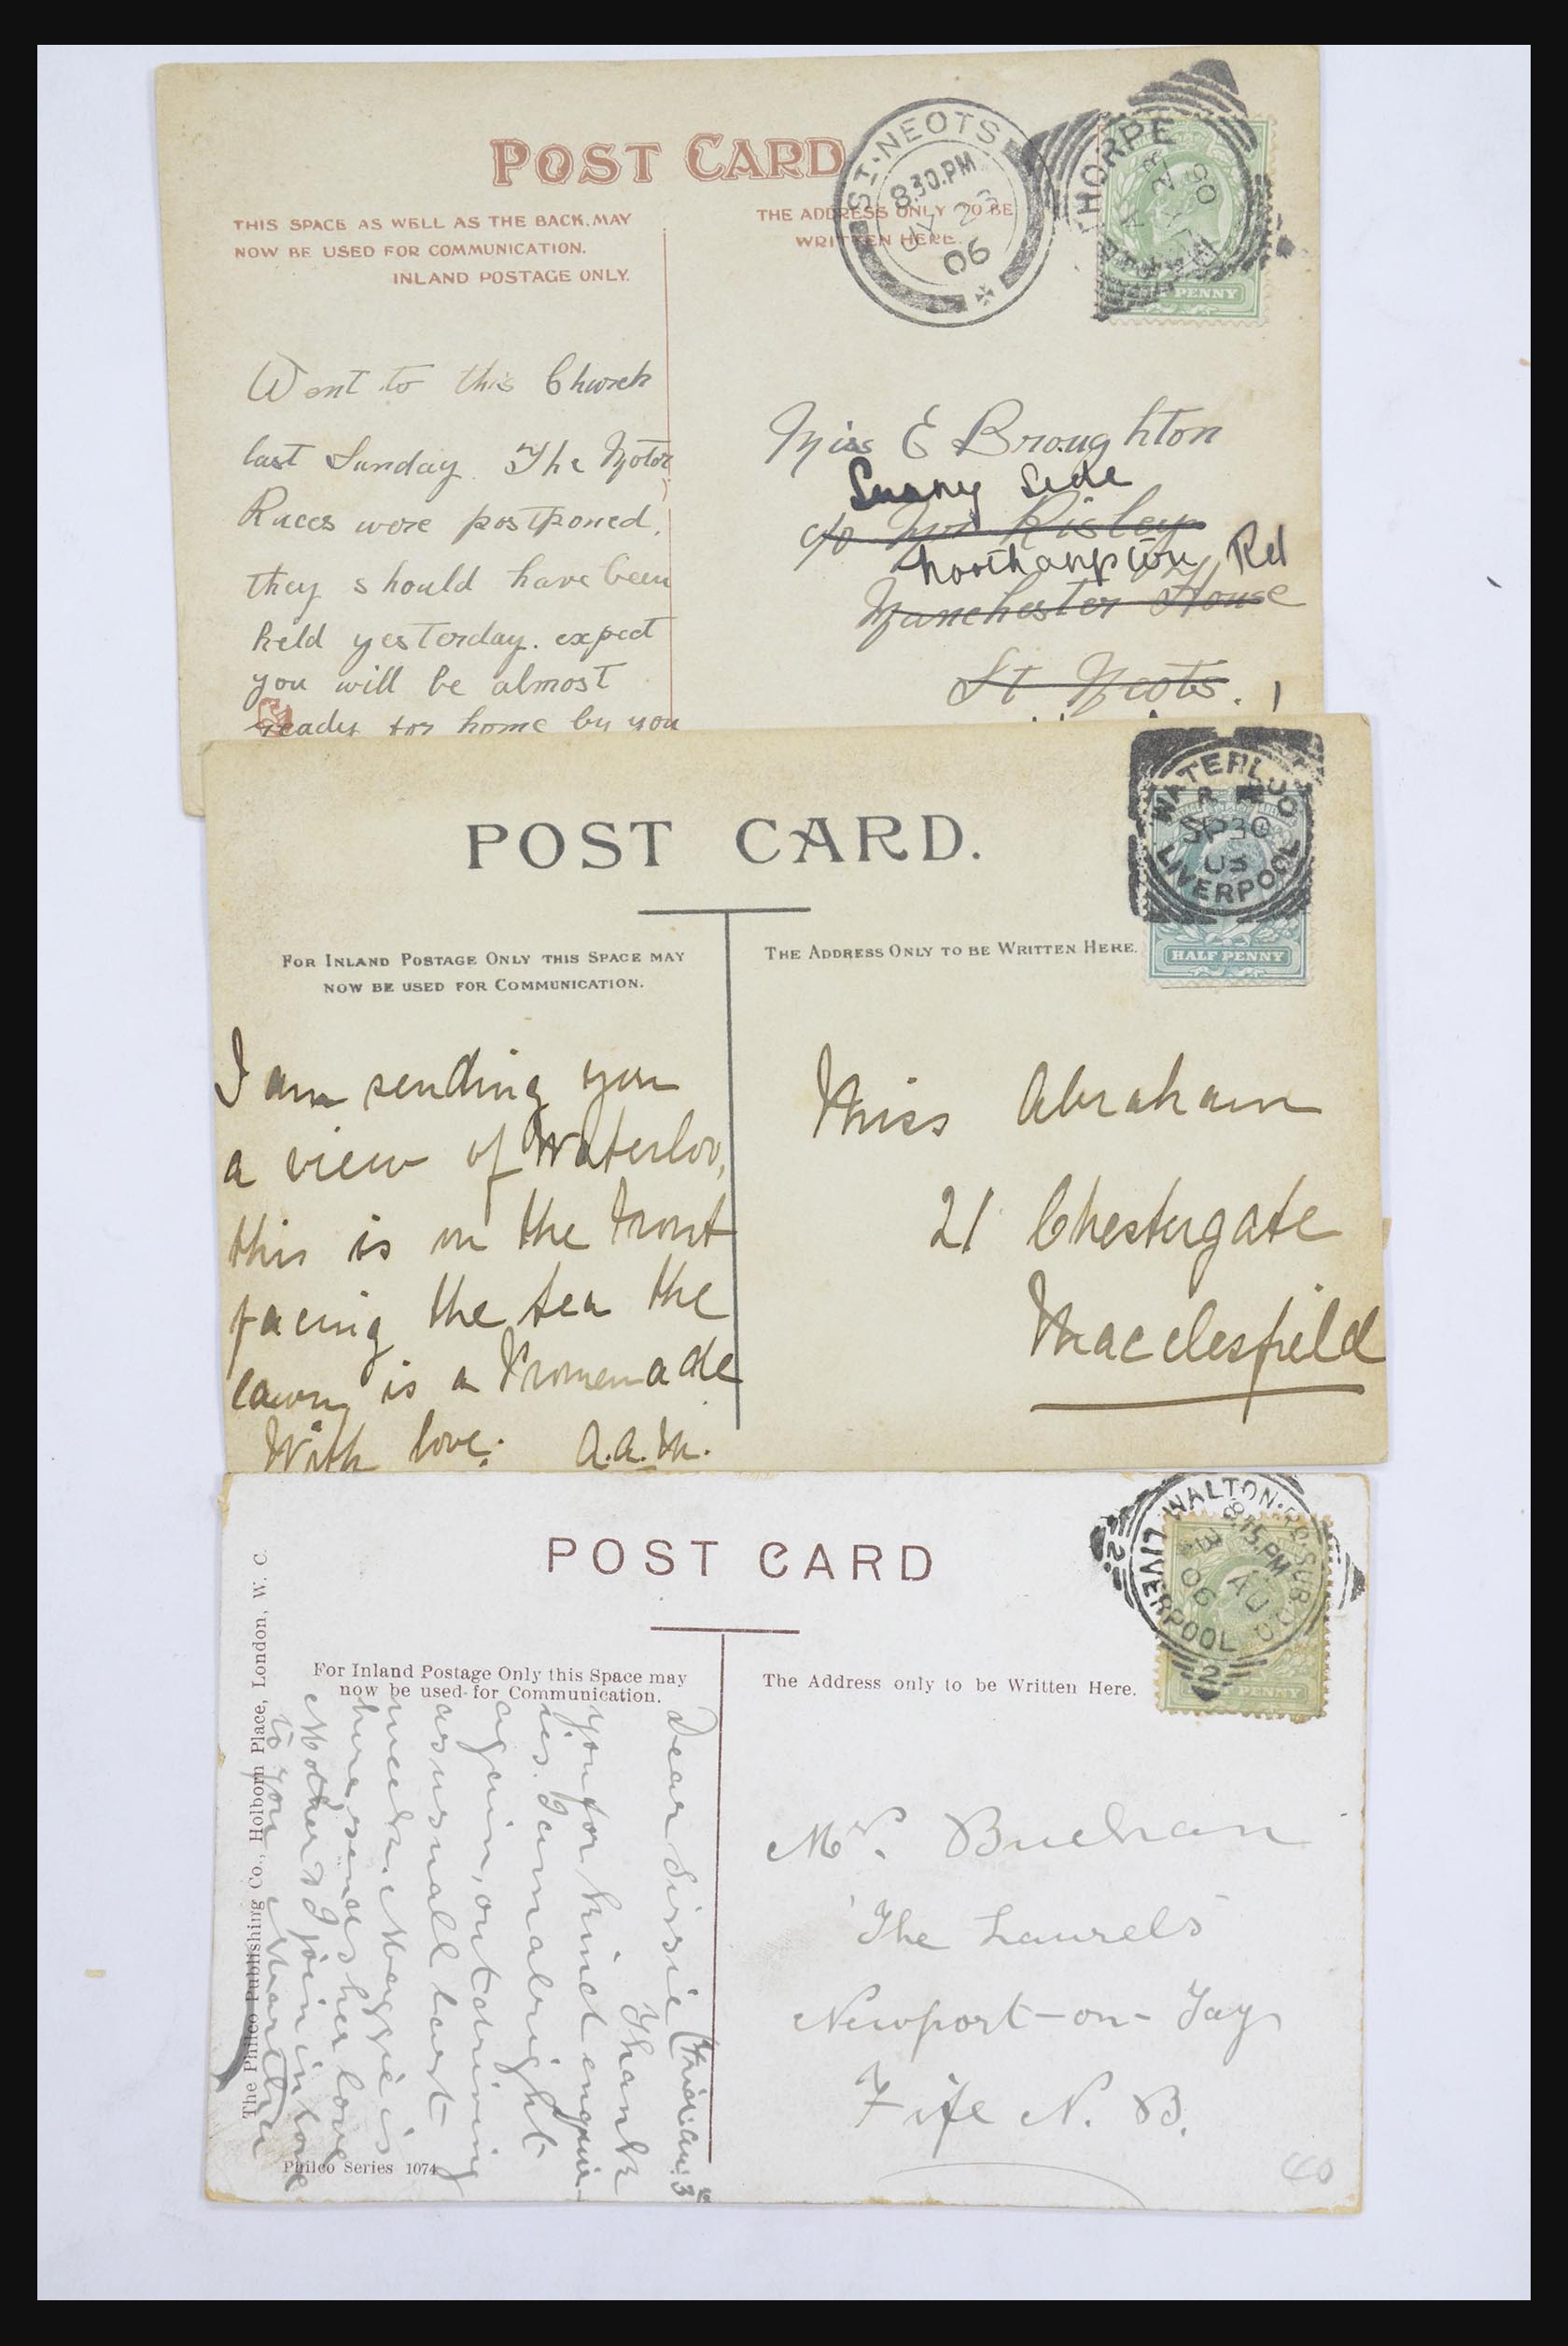 POST CARD
THIS SPACE AS WELL AS THE BACK, MAY
NOW BE USED FOR COMMUNICATION.
INLAND POSTAGE ONLY.
THE ADDRESS ONLY TO BE
WRITTEN HERE.
ST. NEOTS
8.30.PM
JY 23
06
THORPE
PENNY
Went to this Church
last Sunday. The Motor
Races were postponed,
they should have been
held yesterday. expect
you will be almost
ready for home by you
Miss E Broughton
Sunny Side
c/o Mr Risley
Northampton Rd
Manchester House
St Neots.
POST CARD.
FOR INLAND POSTAGE ONLY THIS SPACE MAY
NOW BE USED FOR COMMUNICATION.
THE ADDRESS ONLY TO BE WRITTEN HERE.
WATERLOO
SP 30
LIVERPOOL
HALF PENNY
I am sending you
a view of Waterloo,
this is on the front
facing the sea the
lawn is a Promenade
With love: A.A.M.
Miss Abraham
21 Chestergate
Macclesfield
POST CARD
For Inland Postage Only this Space may
now be used for Communication.
The Address only to be Written Here.
WALTON. SUB
8.15.PM
AU
06
LIVERPOOL
2
PENNY
The Philco Publishing Co., Holborn Place, London, W. C.
Philco Series 1074
Dear Sissie
Thank
you for kind enquir-
ies. I am alright
again, out driving
as usual last
week. Maggie is
here, sends her love
Mother & I join in love
to you Martha
Mrs. Buchan
'The Laurels'
Newport-on-Tay
Fife N. B.